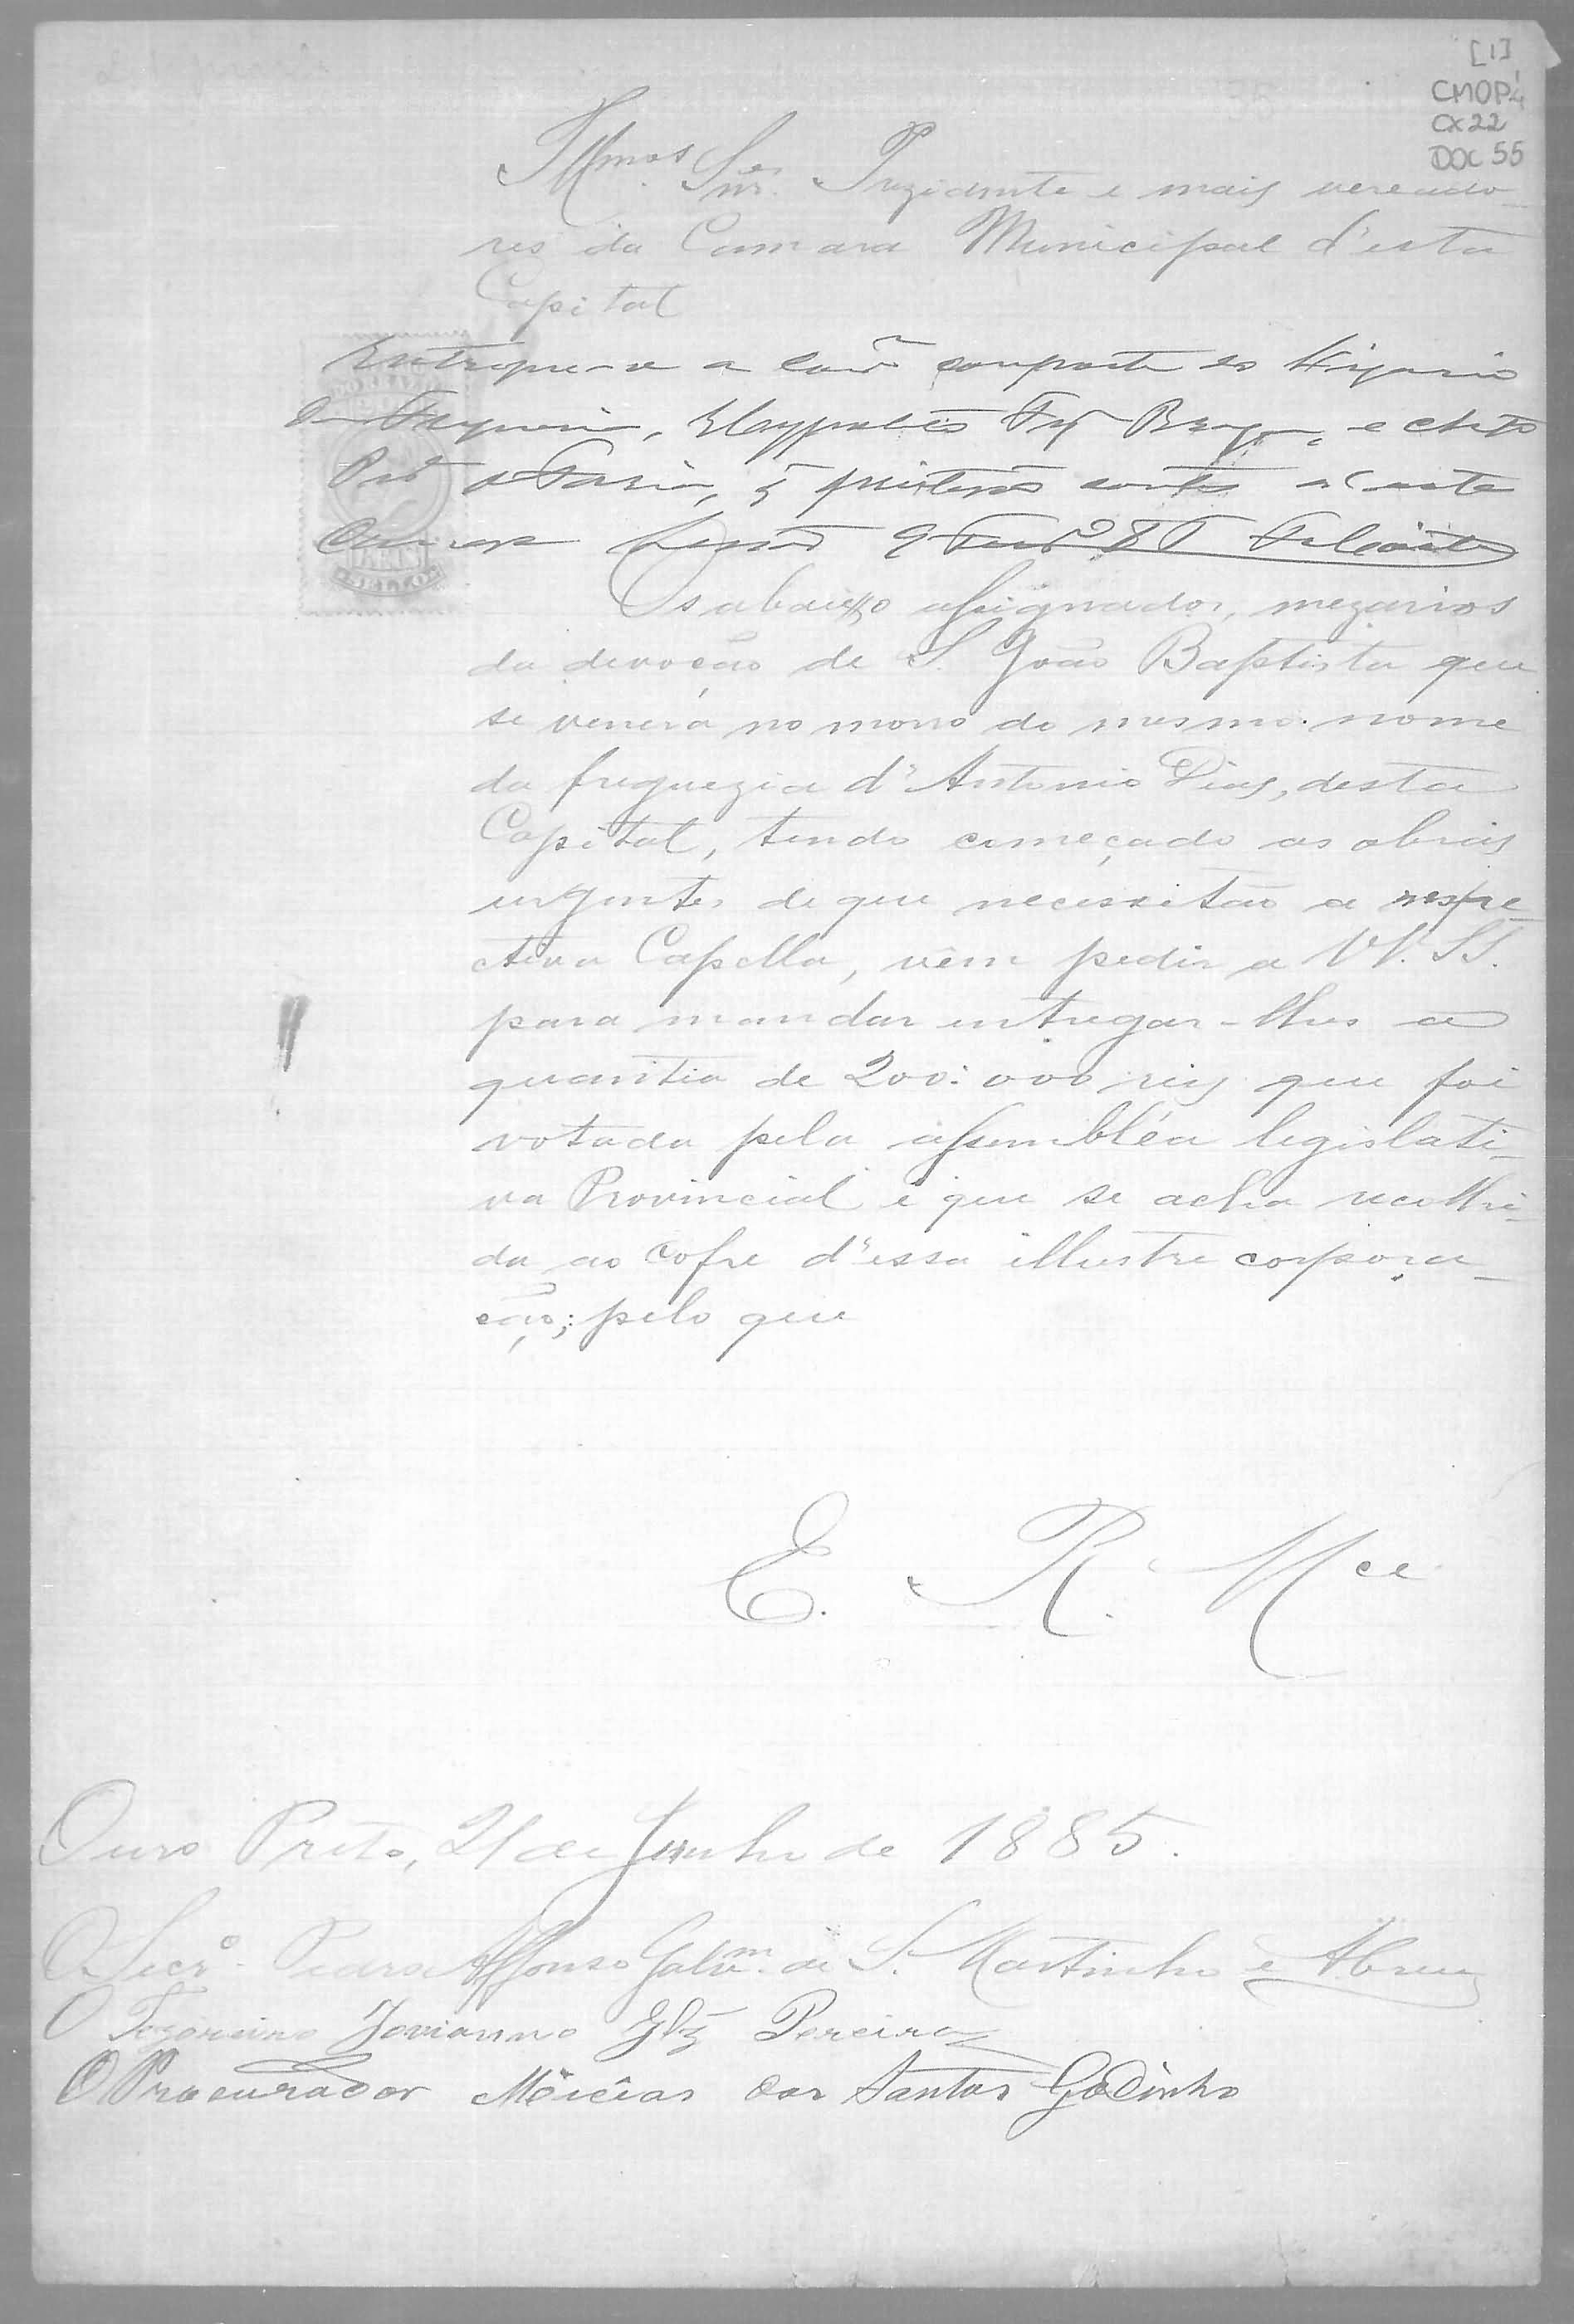 [1]
CMOP
CX 22
DOC 55
Illmos. Snr. Prezidente e mais vereado-
res da Camara Municipal d'esta
Capital
Entregue-se a comparte do Vigario
da Freguesia,
contas a esta
Camara
Os abaixo assignados, mezarios
da devoção de S. João Baptista que
se venera no morro do mesmo nome
da freguezia d'Antonio Dias, desta
Capital, tendo começado as obras
urgentes de que necessitão a respe-
ctiva Capella, vêm pedir a VV. SS.
para mandar entregar-lhes a
quantia de 200:000 reis que foi
votada pela assembléa legislati-
va Provincial e que se acha recolhi-
da ao Cofre d'essa illustre corpora-
ção; pelo que
E. R. Mce
Ouro Preto, 21 de Junho de 1885.
O Secro. Pedro Affonso Galvm. de S. Martinho e Abreu
O Tozoreiro Jovianno Glz Pereira
O Procurador Mecias dos Santos Godinho